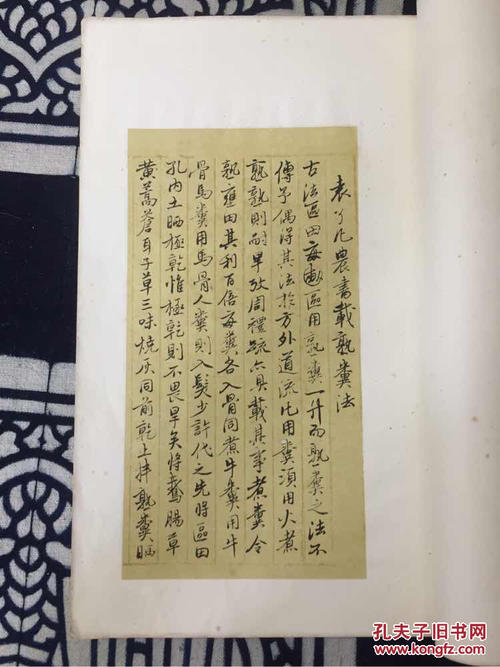 袁了凡農書載熟糞法
古法區田每畝區用熟糞一升而熟糞之法不
傳予偶得其法於方外道流凡用糞須用火煮
熟熟則耐旱攷周禮疏亦具載其事煮糞令
熟壅田其利百倍每糞各入骨同煮牛糞用牛
骨馬糞用馬骨人糞則入髮少許代之先將區田
孔內土晒極乾惟極乾則不畏旱矣將鵞腸草
黃蒿蒼耳子草三味燒灰同前乾土拌熟糞晒
孔夫子旧书网
kongfz.com